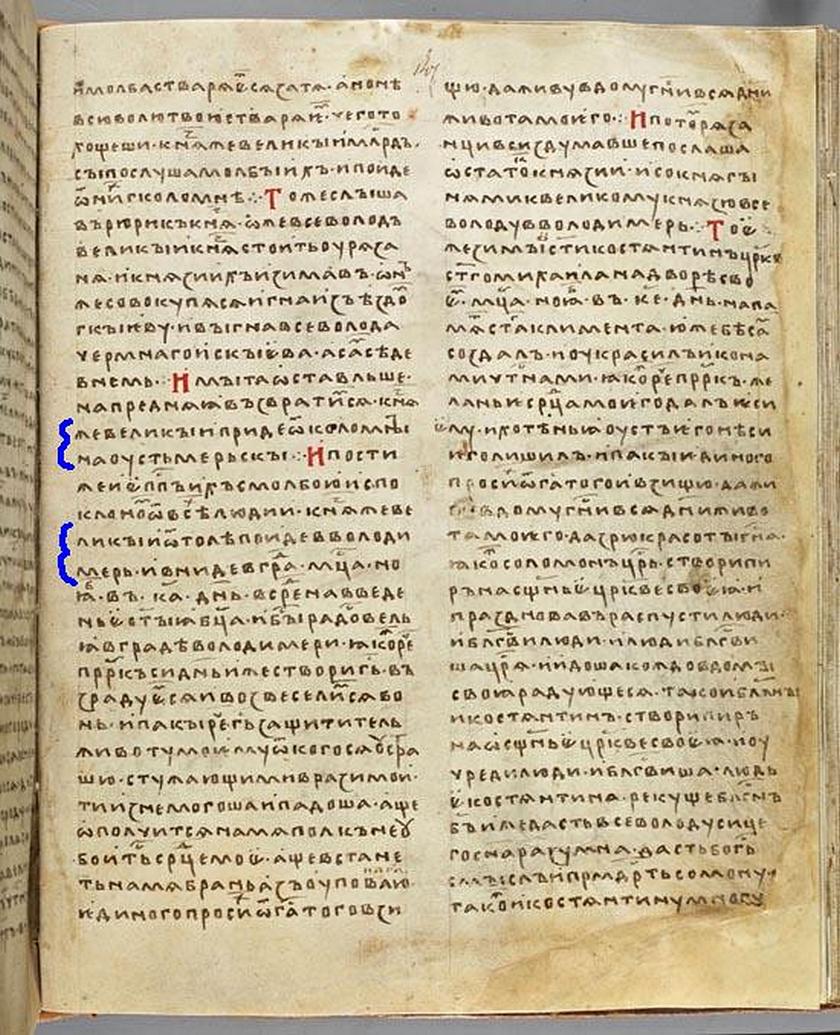 и молба стварѧѥтсѧ ст҃аѧ · а мо не
всю волю твою створѧть · чего то
хощеши · кнѧже великыи и млрдъ·
съ послуша молбы ихъ · и поиде
ѿ нихъ г коломнѣ ⁘ Тоже слыша
въ рюрикъ кнѧ · ѡже всеволодъ
великыи кнѧ стоить оу рѧза
нѧ · и кнѧзи ихъ изимавъ · ѡнъ
же совокупѧсѧ и гна изъѣздо
г кыѥву · и выгна всеволода
чермнаго ис кыѥва · а самъ сѣде
в немь ⁘ И мы та ѡставльше ·
на преднѧѧ възвратимсѧ · кнѧ
же великыи приде ѿ коломны
на оусть мерьскы ⁘ И пости
же и ѥппъ ихъ с молбою и с по
клоно ѿ всѣ людии · кнѧже ве
ликыи ѿтолѣ поиде в володи
мерь · и вниде в гра · мца · но
ѧ · въ · ка · днь · в срѣ на введе
ньѥ стыѧ бца · и бы радо вель
ѧ в градѣ володимери · ѧко ре
пррк · сь днь иже створи гь · въ
зрадуѥмсѧ и возвеселимсѧ во
нь · и пакы ре гь защититель
животу моѥму ѿ кого сѧ оустра
шю · стужающии ми врази мои ·
ти изнемогоша и падоша · аще
ѡполчитсѧ на мѧ полкъ не оу
боитьсѧ срце моѥ · аще встане
ть на мѧ брань на нь азъ оуповаю
ѥдиного проси ѿ га того взи
щю · да живу в дому гни всѧ дни
живота моѥго ⁘ И пото рѧза
нци вси здумавше послаша
ѡстато кнѧзии · и со кнѧгы
нѧми к великому кнѧзю все
володу в володимерь ⁘ Тоѥ
же зимы сти костѧнтинъ црквь
стго михаила на дворѣ сво
ѥ · мца · ноѧ · въ · ке · днь · на па
мѧ ста климента · юже бѣ са
создалъ · и оукрасилъ икона
ми чтнами · ѧко ре пррк · же
ланьѥ срца моѥго далъ ѥси
ѥму · и хотѣньѧ оусту ѥго нѣси
ѥго лишилъ · и пакы ѥдиного
проси ѿ га того и взищю · да жи
ву в дому гни всѧ дни живо
та моѥго · да зрю красоты гнѧ ·
ѧко соломонъ црь · створи пи
ръ на сщньѥ цркве своѥѧ · и
празднова въ распусти люди ·
и блгви люди · и люди блгви
ша црѧ · и идоша кождо в домы
своѧ радующесѧ · тако и блгны
и костѧнтинъ · створи пиръ
на ѡсщньѥ цркве своѥѧ · и оу
чреди люди · и блгвиша · людь
ѥ костѧнтина · рекуще блгнъ
бъ иже дасть всеволоду сице
го сна разумна · дасть богъ
смыслъ и прмдрть соломону ·
тако и костѧнтину многу